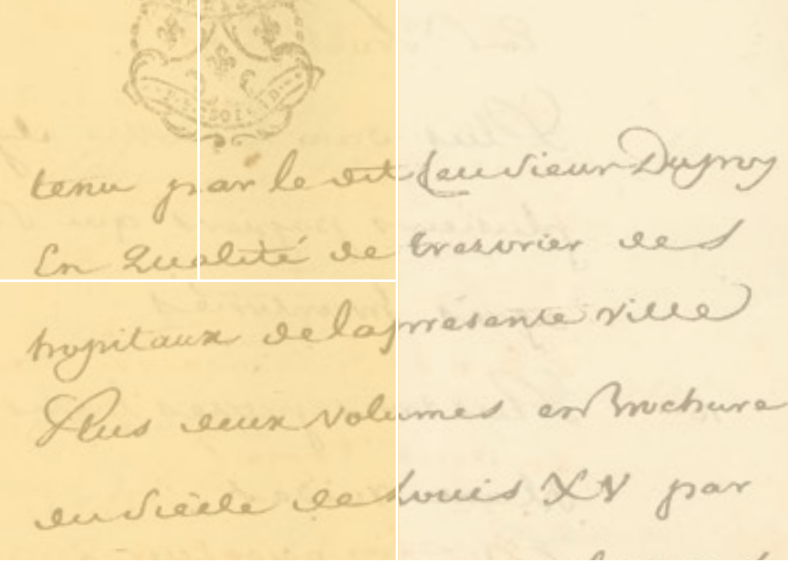 tenu par le dit feu sieur Dupuy
En qualité de tresorier des
hopitaux de la presente ville
Plus deux volumes en Brochure
du siècle de Louis XV par